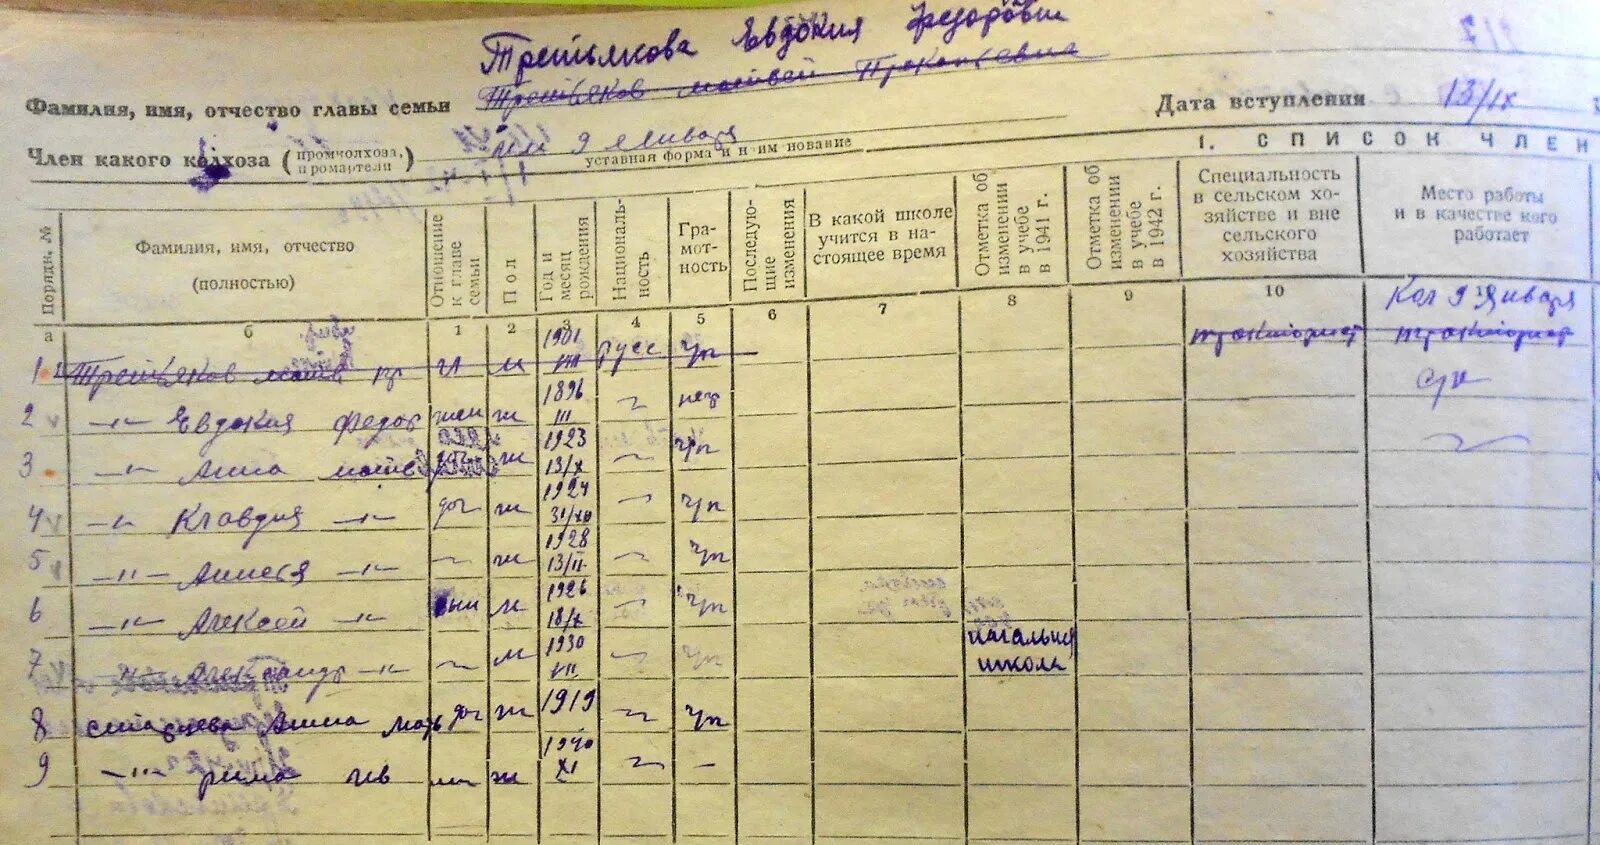 Третьякова Евдокия Федоровн
Третьяков Матвей Прокопьевич
Фамилия, имя, отчество главы семьи
Дата вступления 13/IX
Член какого колхоза (промчолхоза, промартели) им 9 Января
уставная форма и н им нование
I. СПИСОК ЧЛЕН
Порядк. №
Фамилия, имя, отчество (полностью)
Отношение к главе семьи
Пол
Год и месяц рождения
Националь-ность
Гра-мот-ность
Последую-щие изменения
В какой школе учится в на-стоящее время
Отметка об изменении в учебе в 1941 г.
Отметка об изменении в учебе в 1942 г.
Специальность в сельском хо-зяйстве и вне сельского хозяйства
Место работы и в качестве кого работает
а б 1 2 3 4 5 6 7 8 9 10
Кол 9 Января
1 Третьяков Матв пр гл м 1901 III русс гр тракторист тракторист
2 -"- Евдокия Федор жен ж 1896 III нег
3 -"- Анна Матв доч ж 1923 13/X гр
4 -"- Клавдия -"- доч ж 1924 гр
5 -"- -"- ж 1928 13/II гр
6 -"- Алексей -"- м 1926 18/X гр
7 -"- Александр -"- м 1930 начальня школа
8 Анна Матв доч ж 1919 гр
9 -"- Рима ж 1940 XI -